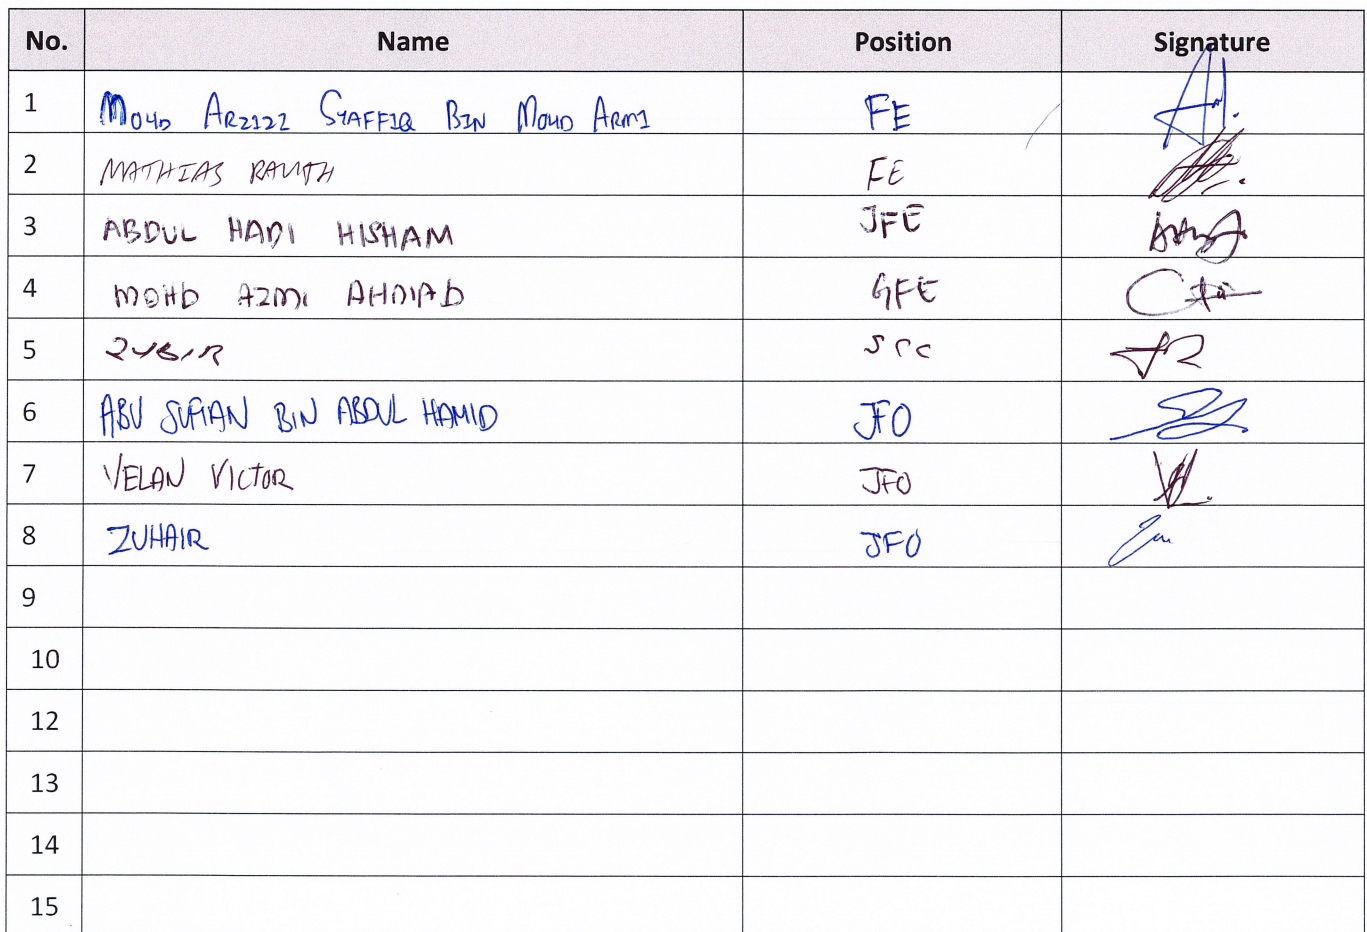 No. Name Position Signature
1 MOHD ARZIZI SYAFFIQ BIN MOHD ARMI FE
2 MATHIAS FE
3 ABDUL HADI HISHAM JFE
4 MOHD AZMI AHMAD GFE
5 ZUBIR
6 ABU SUFIAN BIN ABDUL HAMID JFO
7 VELAN VICTOR JFO
8 ZUHAIR JFO
9
10
12
13
14
15